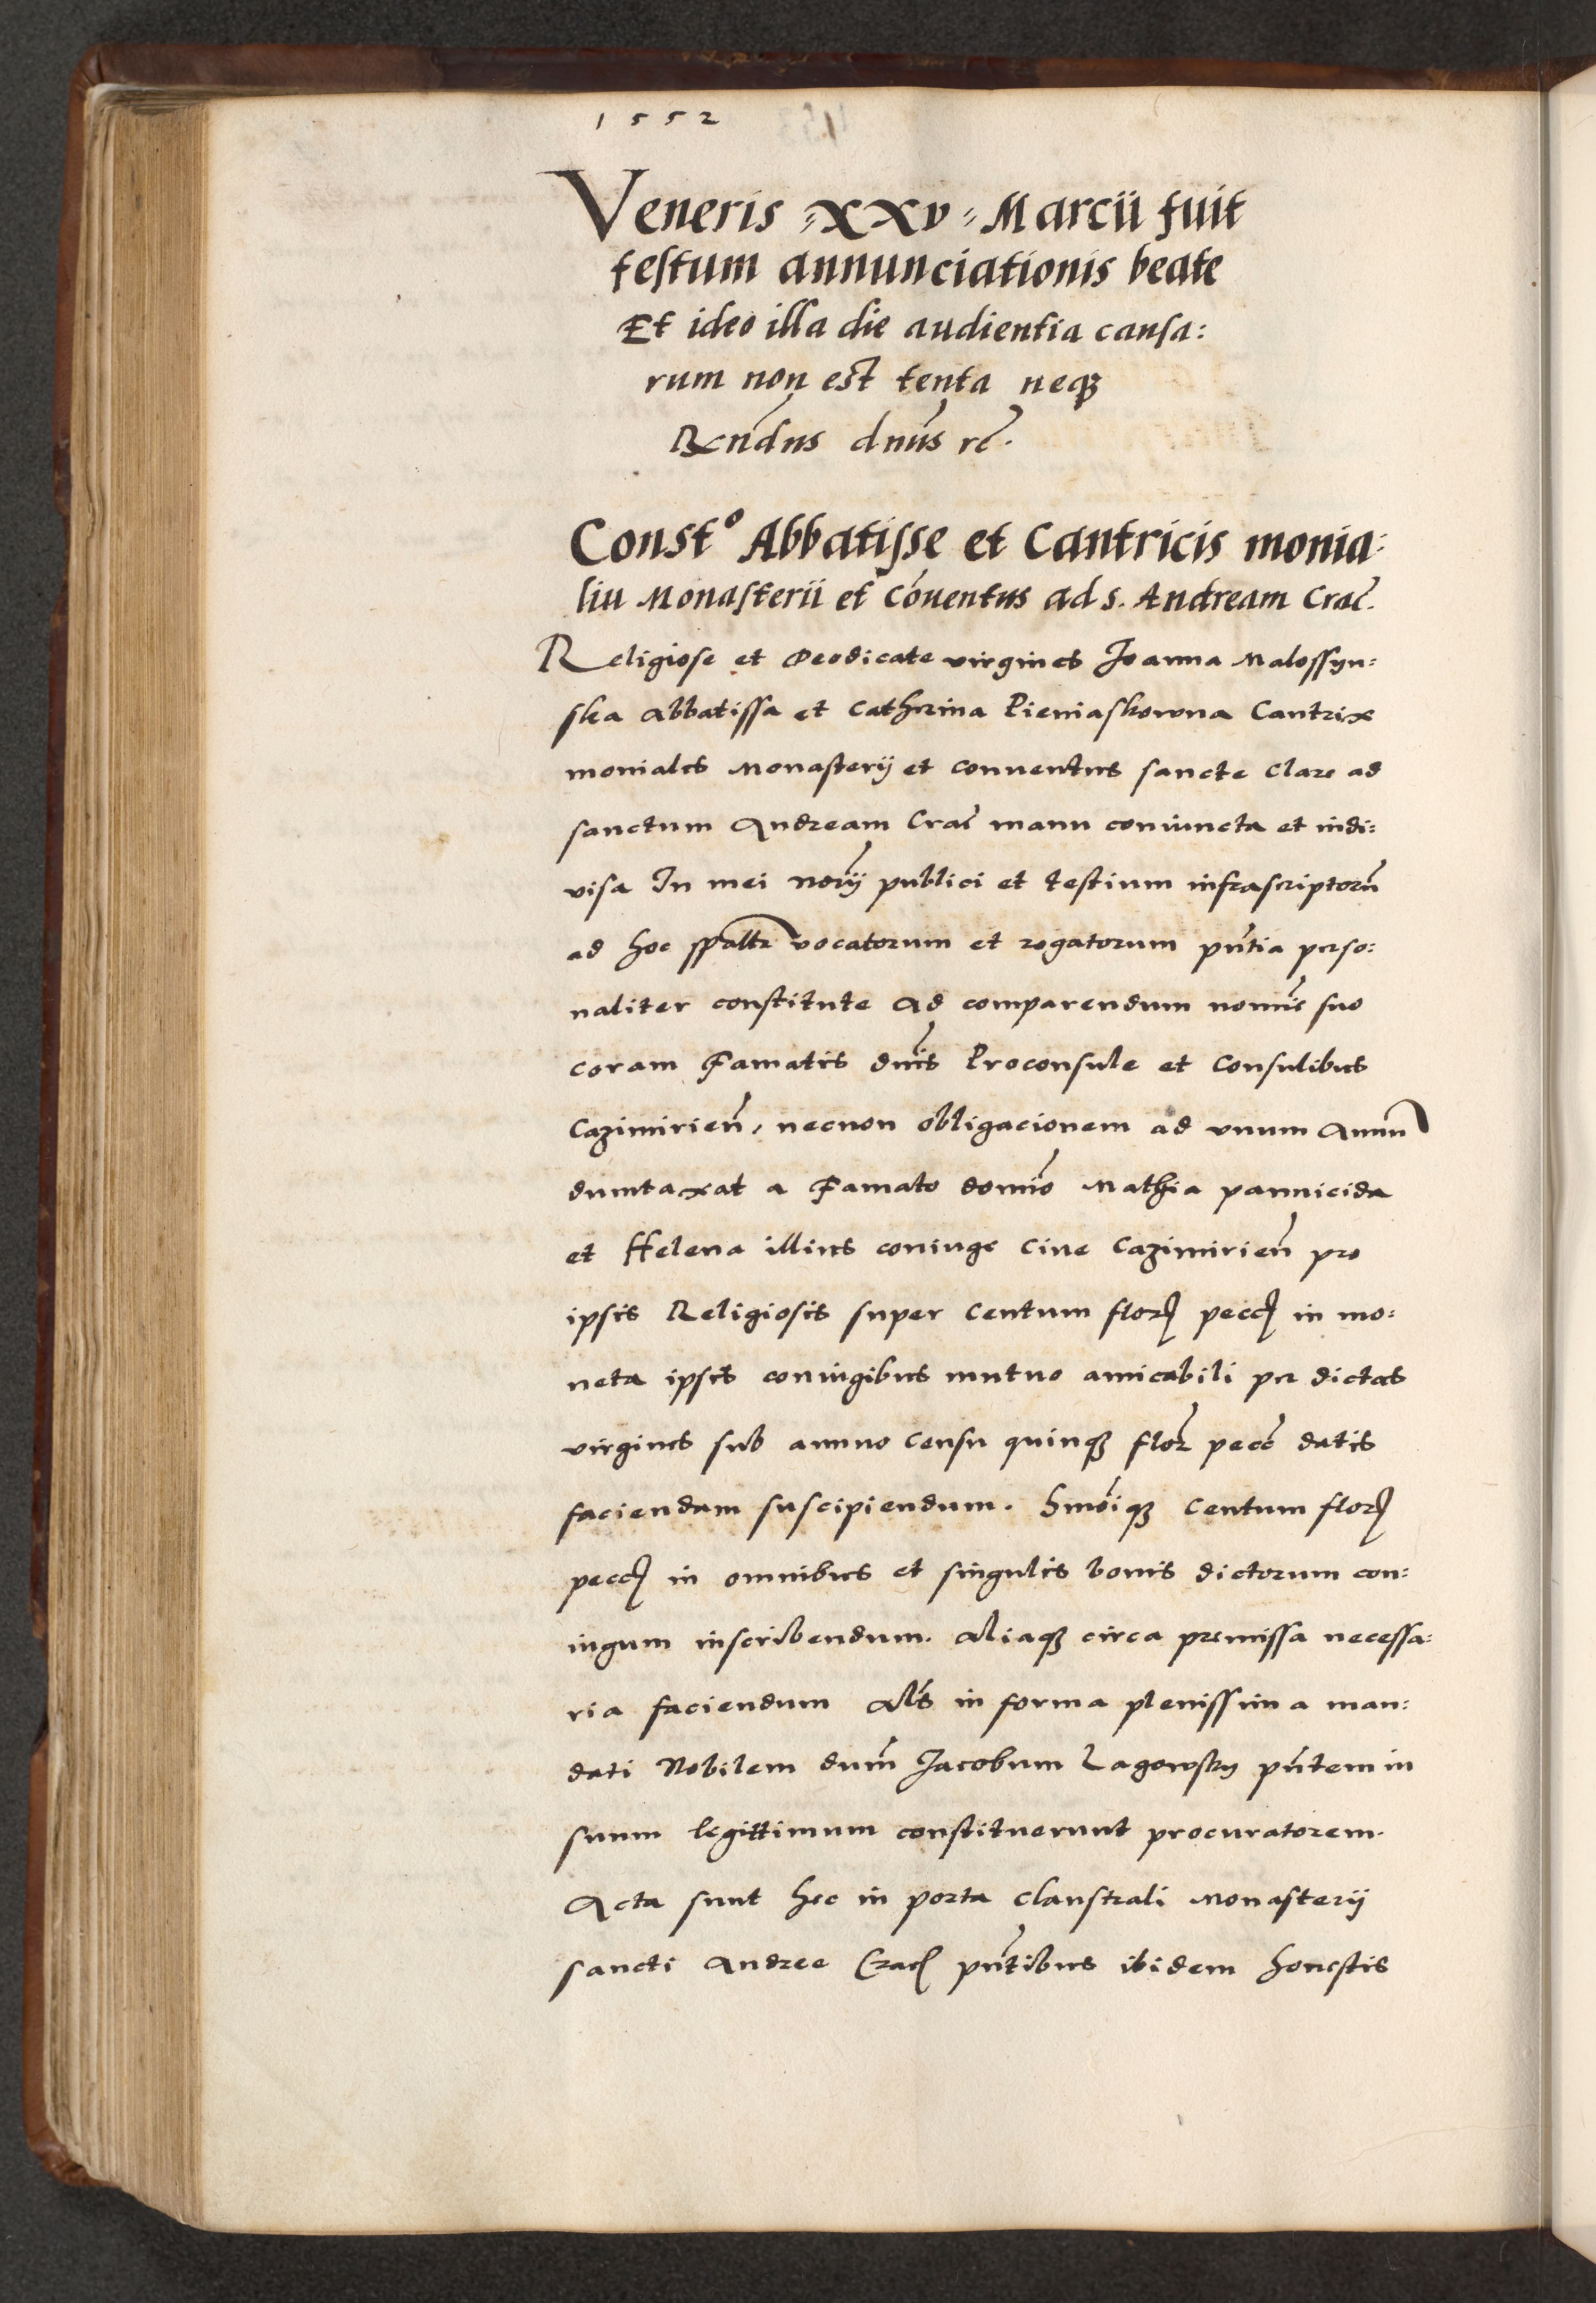 1552
Veneris XXV Marcii fuit
festum annunciationis beate
Et ideo illa die audientia causa:
rum non est tenta neq3
Rendus dnus rc̃.
Constº Abbatisse et Cantricis monia:
liu Monasterii et Cōuentus ad s. Andream Crac̃.
Religiose et Deodicate virgines Joanna Malossyn:
ska Abbatissa et Catherina Pieniaskowna Cantrix
moniales Monasterij et conuentus sancte Clare ad
sanctum Andream Crac̃ manu coniuncta et indi:
visa In mei norij publici et testium infrascriptorū
ad hoc spaltr vocatorum et rogatorum pn̄tia perso:
naliter constitute Ad comparendum nomīe suo
coram Famatis dnīs Proconsule et Consulibus
Cazimirien̄, necnon obligacionem ad vnum Annū
dumtaxat a Famato domīo Mathia pannicida
et Helena illius coniuge Ciue Cazimirien̄ pro
ipsis Religiosis super Centum flor̄ pecc̄ in mo:
neta ipsis coniugibus mutuo amicabili per dictas
virgines sub annuo Censu quinq3 flor̄ pecc̄ datis
faciendam suscipiendum. Hmōiq3 Centum flor̄
pecc̄ in omnibus et singulis bonis dictorum con:
iugum inscribendum. Aliaq3 circa premissa necessa:
ria faciendum Als̄ in forma plenissima man:
dati Nobilem dnum̄ Jacobum Lagowsky pn̄tem in
suum legittimum constituerunt procuratorem.
Acta sunt hec in porta claustrali Monasterij
sancti Andree Crac̄ pn̄tibus ibidem honestis